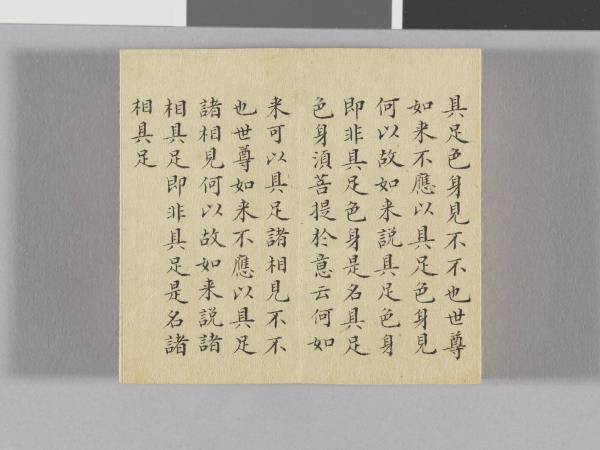 具足色身見不不也世尊
如来不應以具足色身見
何以故如来說具足色身
即非具足色身是名具足
色身湏菩提於意云何如
来可以具足諸相見不不
也世尊如来不應以具足
諸相見何以故如来說諸
相具足即非具足是名諸
相具足